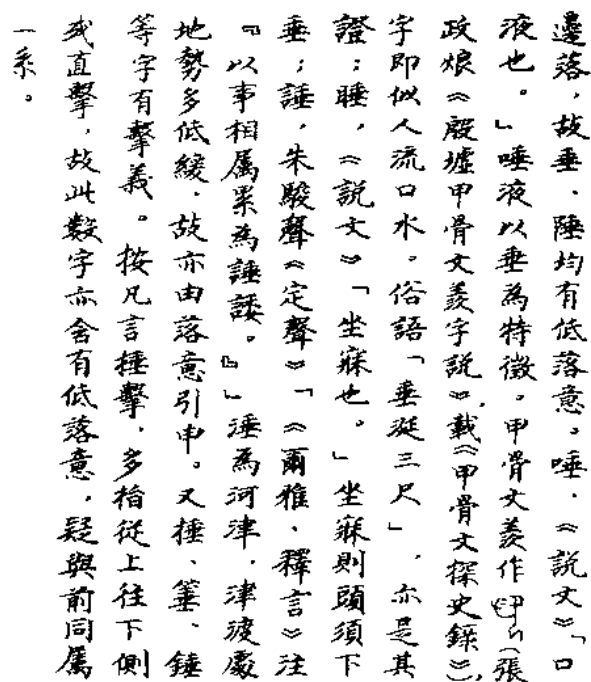 邊落，故垂、陲均有低落意。唾，《說文》「口
液也。」唾液以垂為特徵。甲骨文羨作(張
政烺《殷墟甲骨文羨字說》，載《甲骨文探史錄》)，
字即似人流口水。俗語「垂涎三尺」，亦是其
證；睡，《說文》「坐寐也。」坐寐則頭須下
垂；諈，朱駿聲《定聲》「《爾雅、釋言》注
『以事相屬累為諈諉。』」涶為河津，津渡處
地勢多低緩，故亦由落意引申。又捶、箠、錘
等字有擊義。按凡言捶擊，多指從上往下側
或直擊，故此數字亦含有低落意，疑與前同屬
一系。